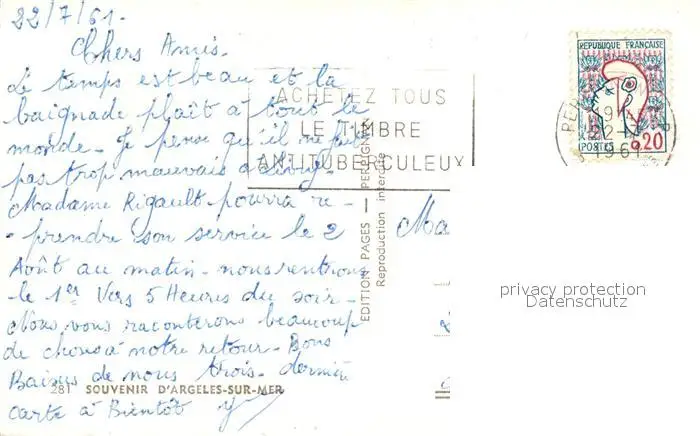 22/7/61-
Chers Amis-
Le temps est beau et la
baignade plaît à tout le
monde- Je pense qu'il ne fait
pas trop mauvais à
Madame Rigault pourra re-
-prendre son service le 2
Août au matin- nous rentrons
le 1er Vers 5 Heures du soir-
Nous vous raconterons beaucoup
de choses à notre retour- Bons
Baisers de nous trois- dernière
carte à Bientôt
281 SOUVENIR D'ARGELES-SUR-MER
ACHETEZ TOUS
LE TIMBRE
ANTITUBERCULEUX
EDITION PAGES — PERPIGNAN
Reproduction interdite
REPUBLIQUE FRANÇAISE
POSTES 0,20
22-7
1961
Ma
privacy protection
Datenschutz